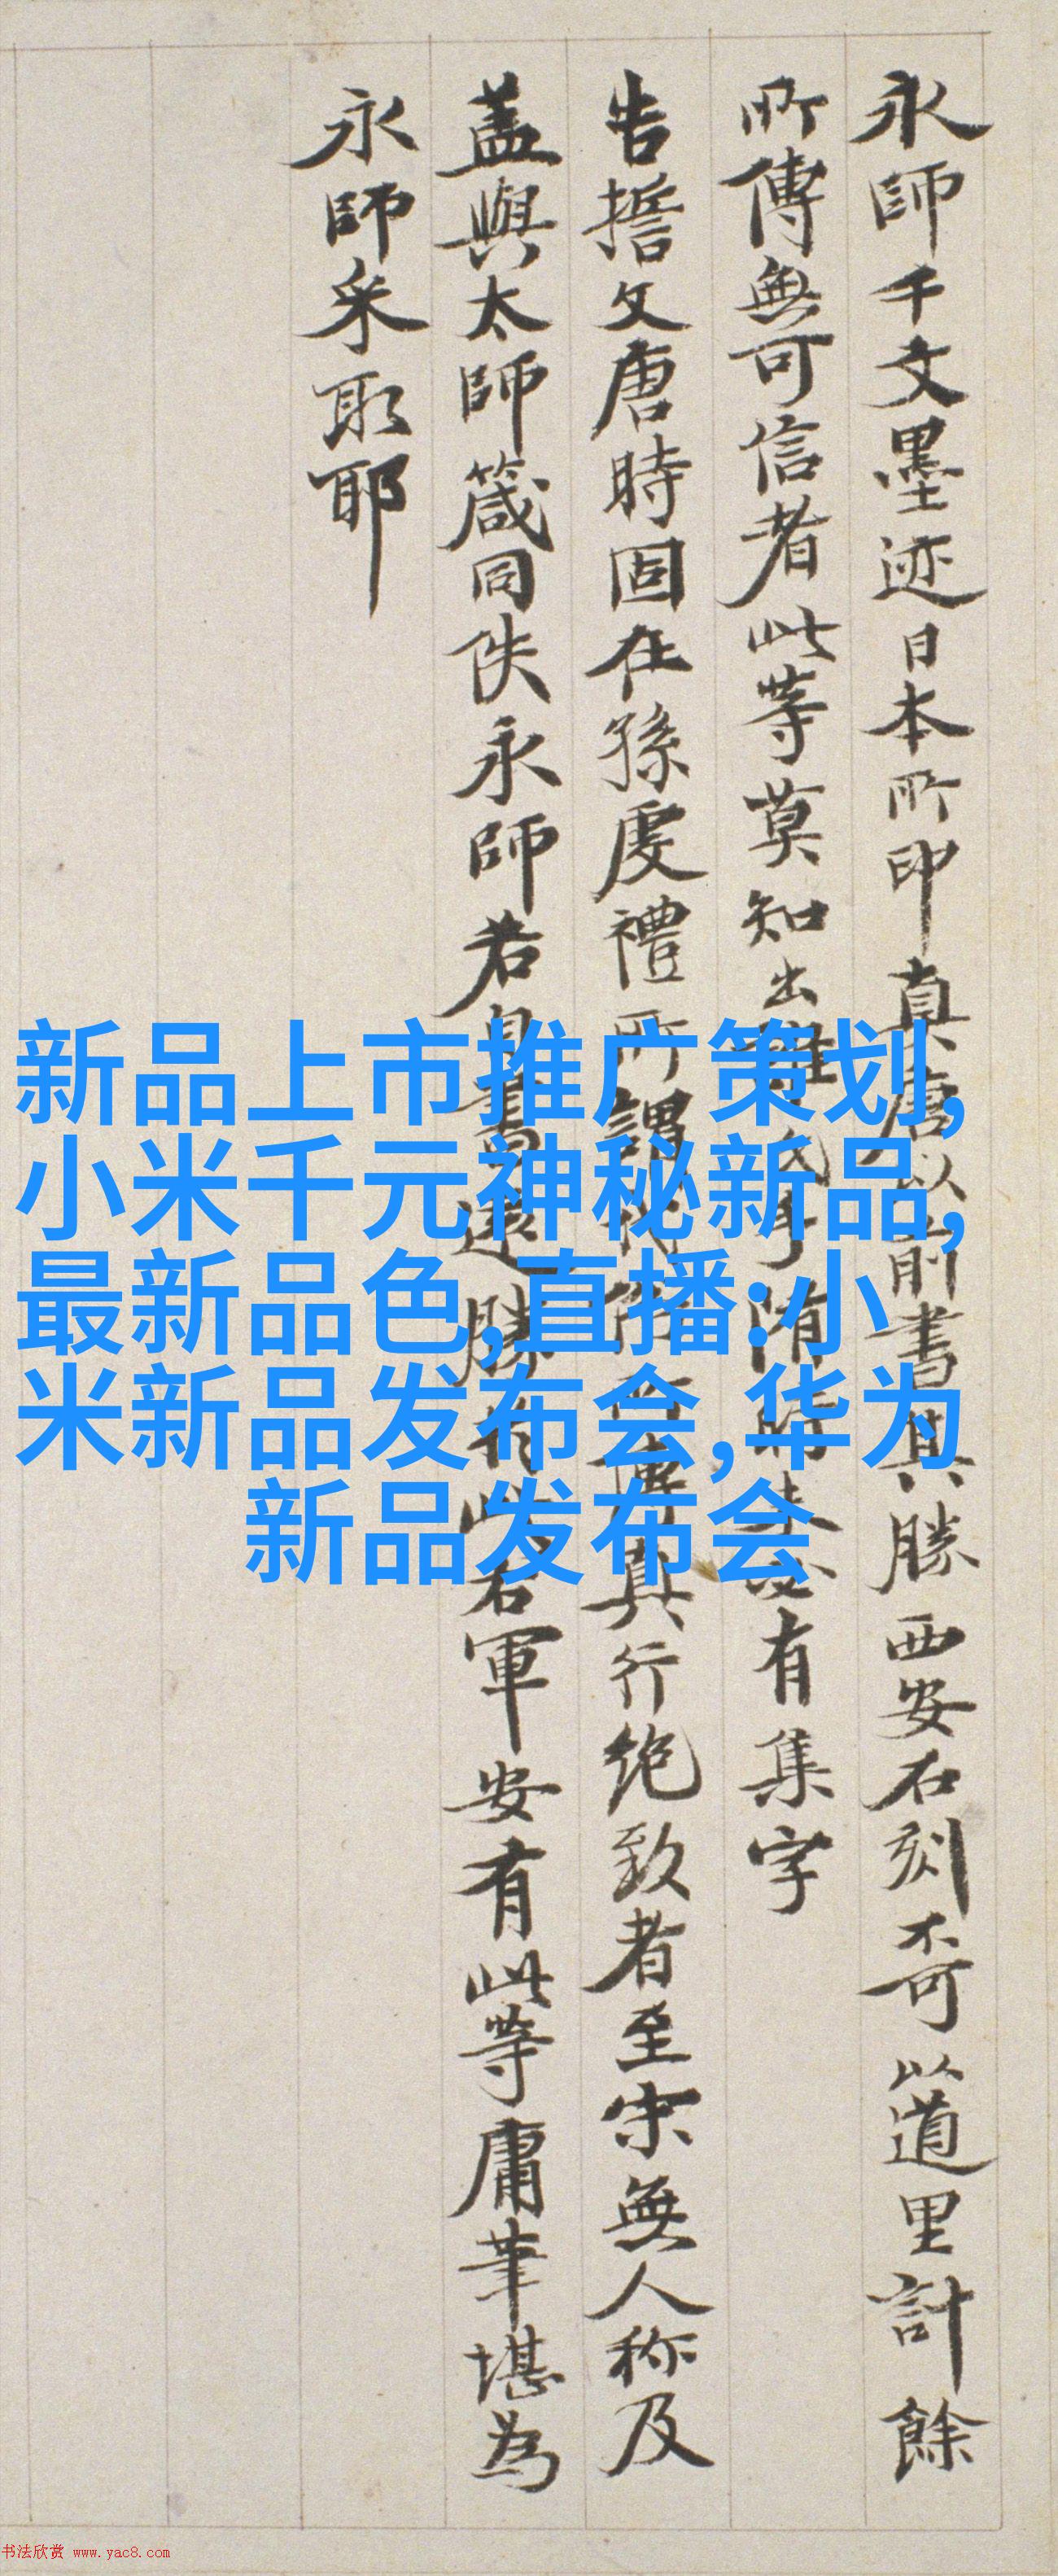 永師千文墨迹日本所印真唐以前書其勝西安石刻不可以道里計餘
所傳無可信者此等莫知出誰氏手隋時未必有集字
告誓文唐時固在孫虔禮所謂真行絕致者至宋無人称及
蓋與太師箴同佚永師若軍安有此等庸筆堪為
永師采取耶
新品上市推广策划,
小米千元神秘新品,
最新品色,直播:小
米新品发布会,华为
新品发布会
书法欣赏 www.yac8.com